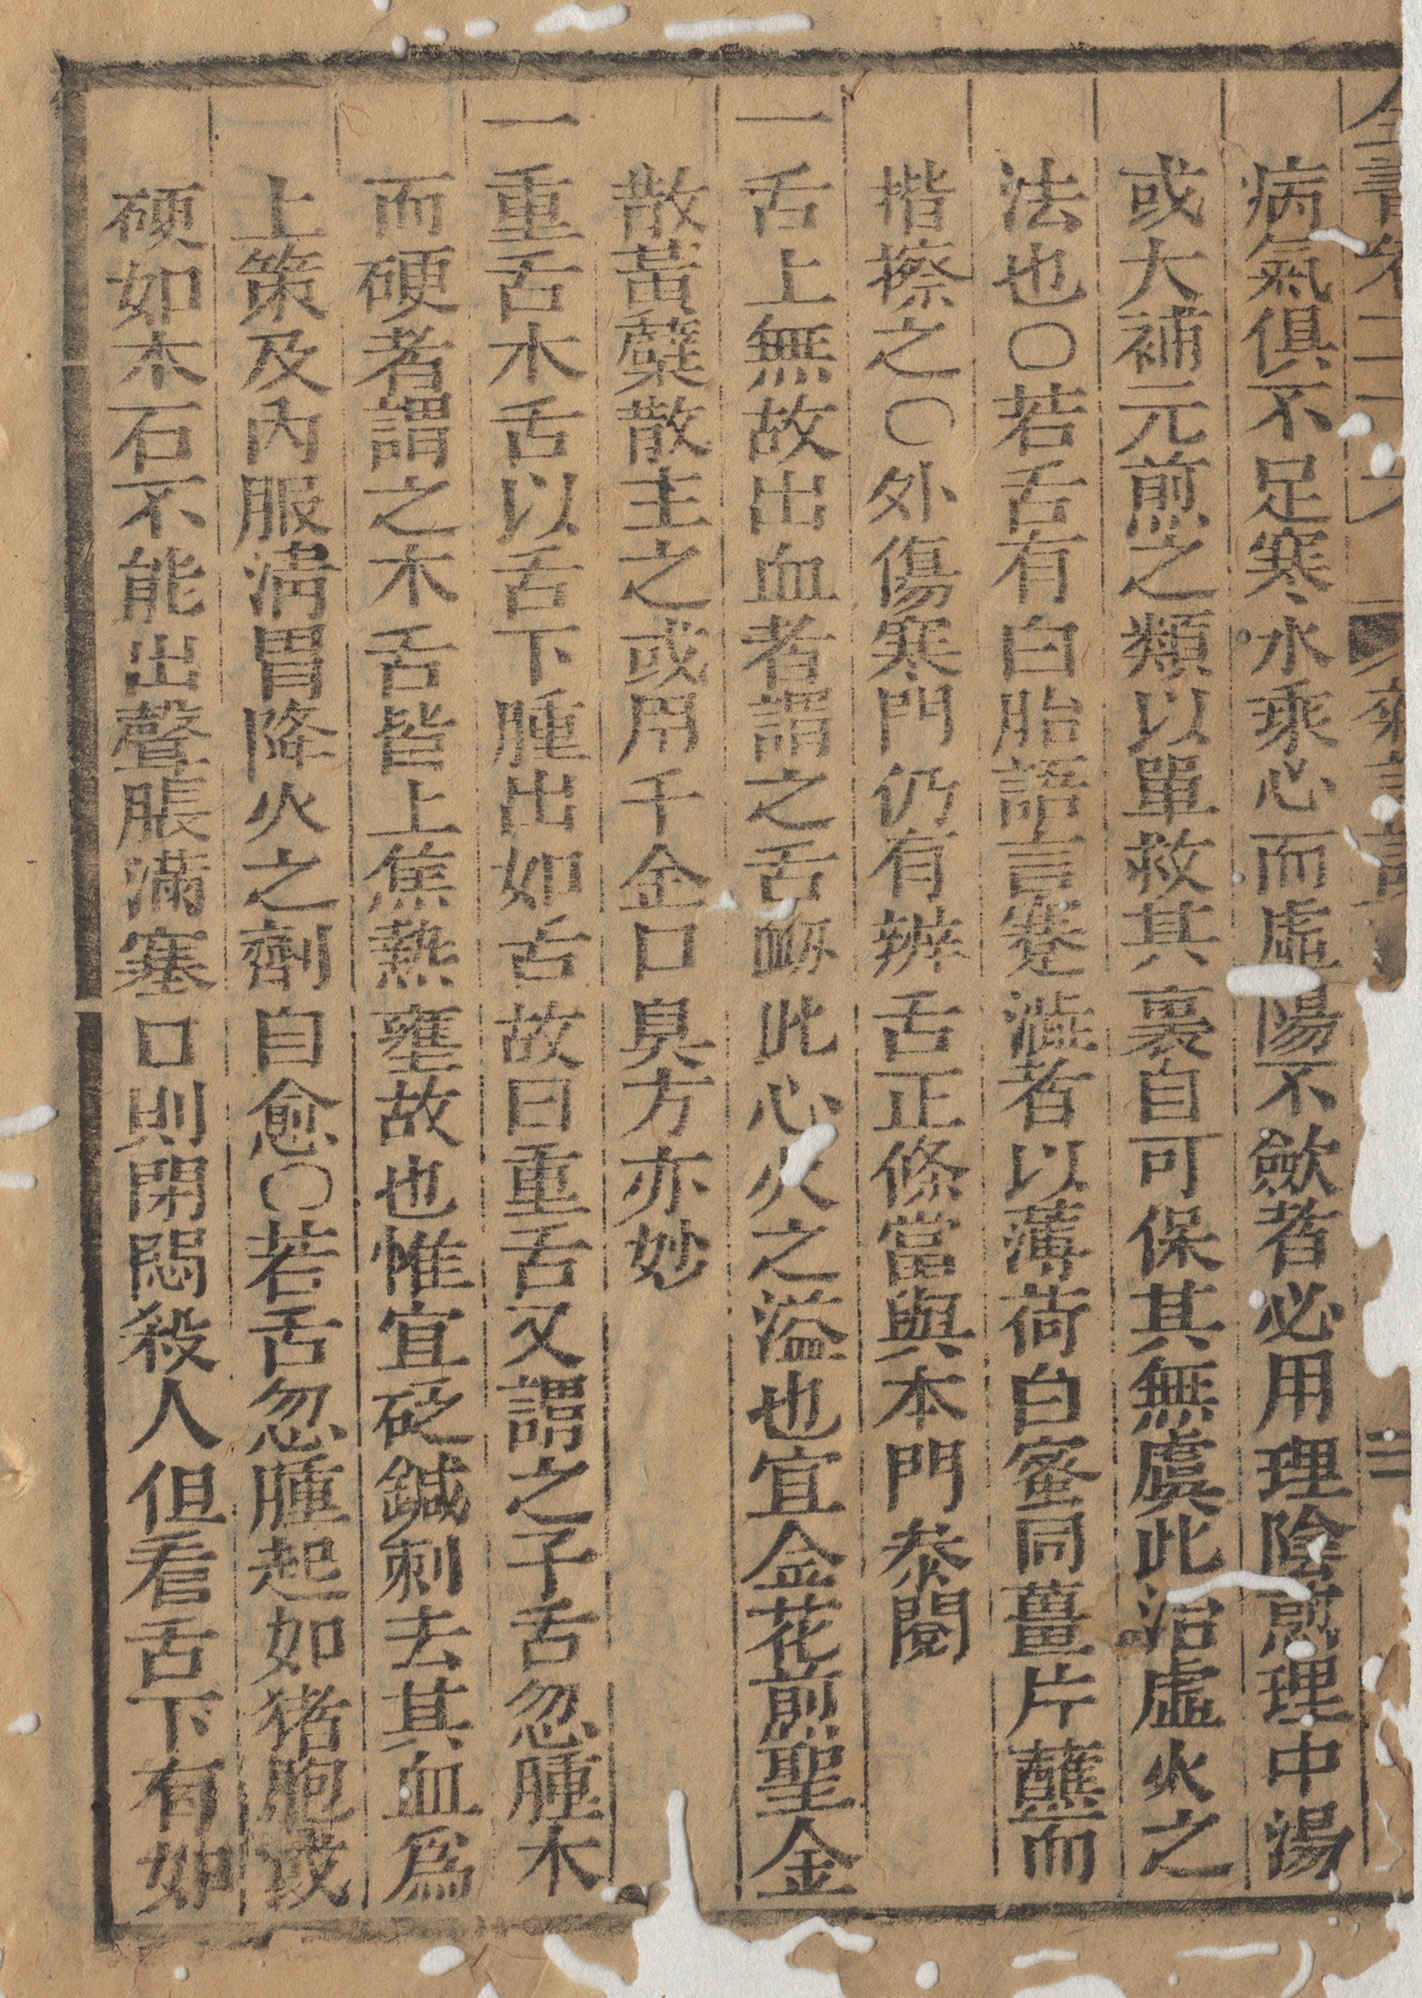 全書卷二十六 雜證謨 二
病氣俱不足寒水乘心而虛陽不歛者必用理陰煎理中湯
或大補元煎之類以單救其裏自可保其無虞此治虛火之
法也〇若舌有白胎語言蹇澁者以薄荷白蜜同薑片蘸而
揩擦之〇外傷寒門仍有辨舌正條當與本門叅閱
一舌上無故出血者謂之舌衂此心火之溢也宜金花煎聖金
散黃蘗散主之或用千金口臭方亦妙
一重舌木舌以舌下腫出如舌故曰重舌又謂之子舌忽腫木
而硬者謂之木舌皆上焦熱壅故也惟宜砭鍼刺去其血爲
上策及內服淸胃降火之劑自愈〇若舌忽腫起如猪胞或
硬如木石不能出聲脹滿塞口則閉悶殺人但看舌下有如